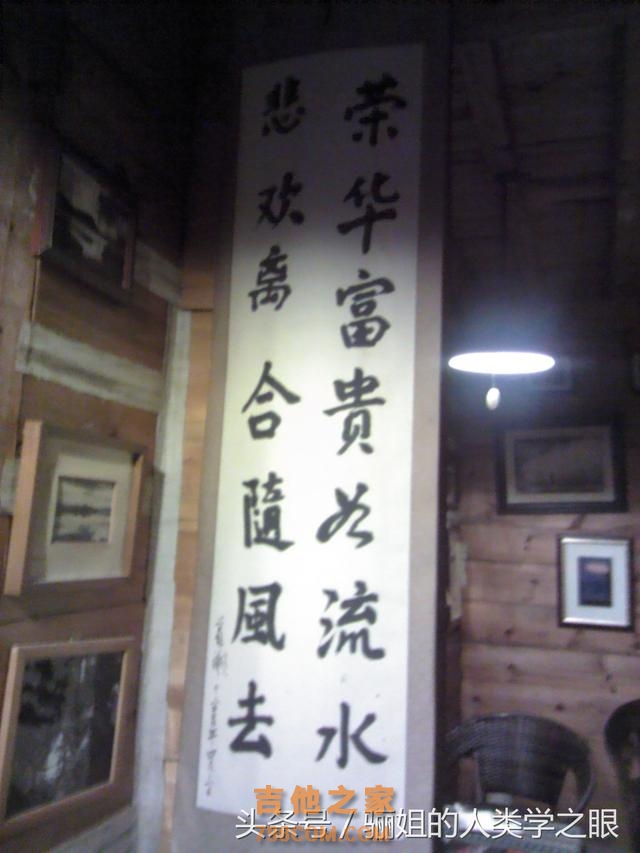 荣华富貴如流水
悲欢离合隨風去
吉他之家
798COM.COM
头条号 / 骊姐的人类学之眼